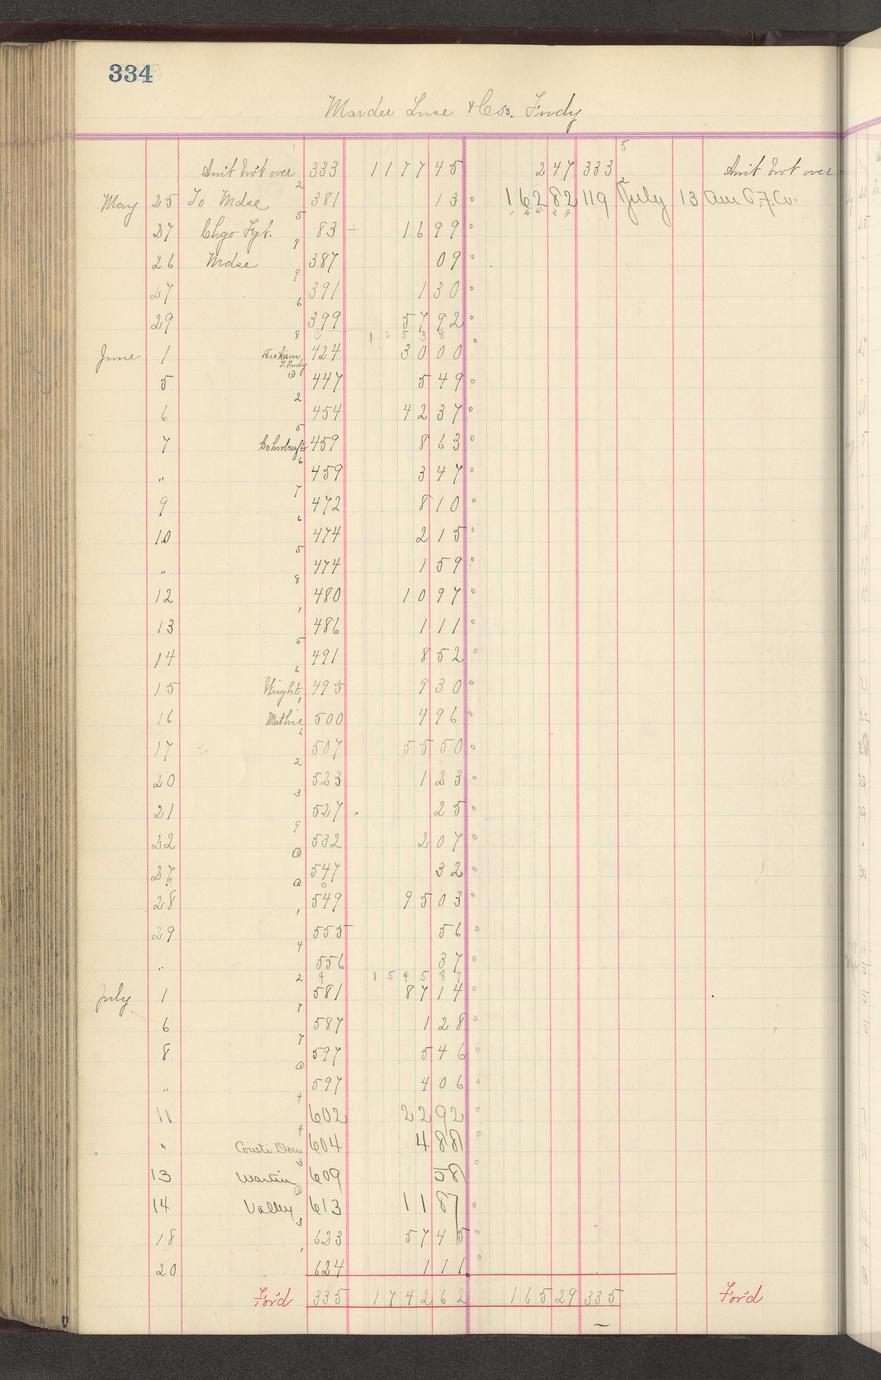 334
Marder Luse & Co's. Fndy
Am't bro't over 333 1177 45 2 47 333 Am't brot over
May 25 To Mdse 381 13 162 82 119 July 13 Am O.F. Co.
27 Chgo Fgt. 83 16 99
26 Mdse 387 09
27 391 1 30
29 399 57 92
1 2 5 3 8
June 1 424 30 00
5 447 5 49
6 454 42 37
7 459 8 63
" 459 3 47
9 472 8 10
10 474 2 15
" 474 1 59
12 480 10 97
13 486 1 11
14 491 8 52
15 Wright 495 9 30
16 Mathis 500 4 96
17 507 55 50
20 523 1 23
21 527 25
22 532 2 07
27 547 32
28 549 95 03
29 555 56
" 556 37
1 5 4 5 8 7
July 1 581 87 14
6 587 1 28
8 597 5 46
" 597 4 06
11 602 22 92
" 604 4 88
13 Martin 609 58
14 Valley 613 11 87
18 623 57 45
20 624 1 11
For'd 335 1742 62 165 29 335 For'd